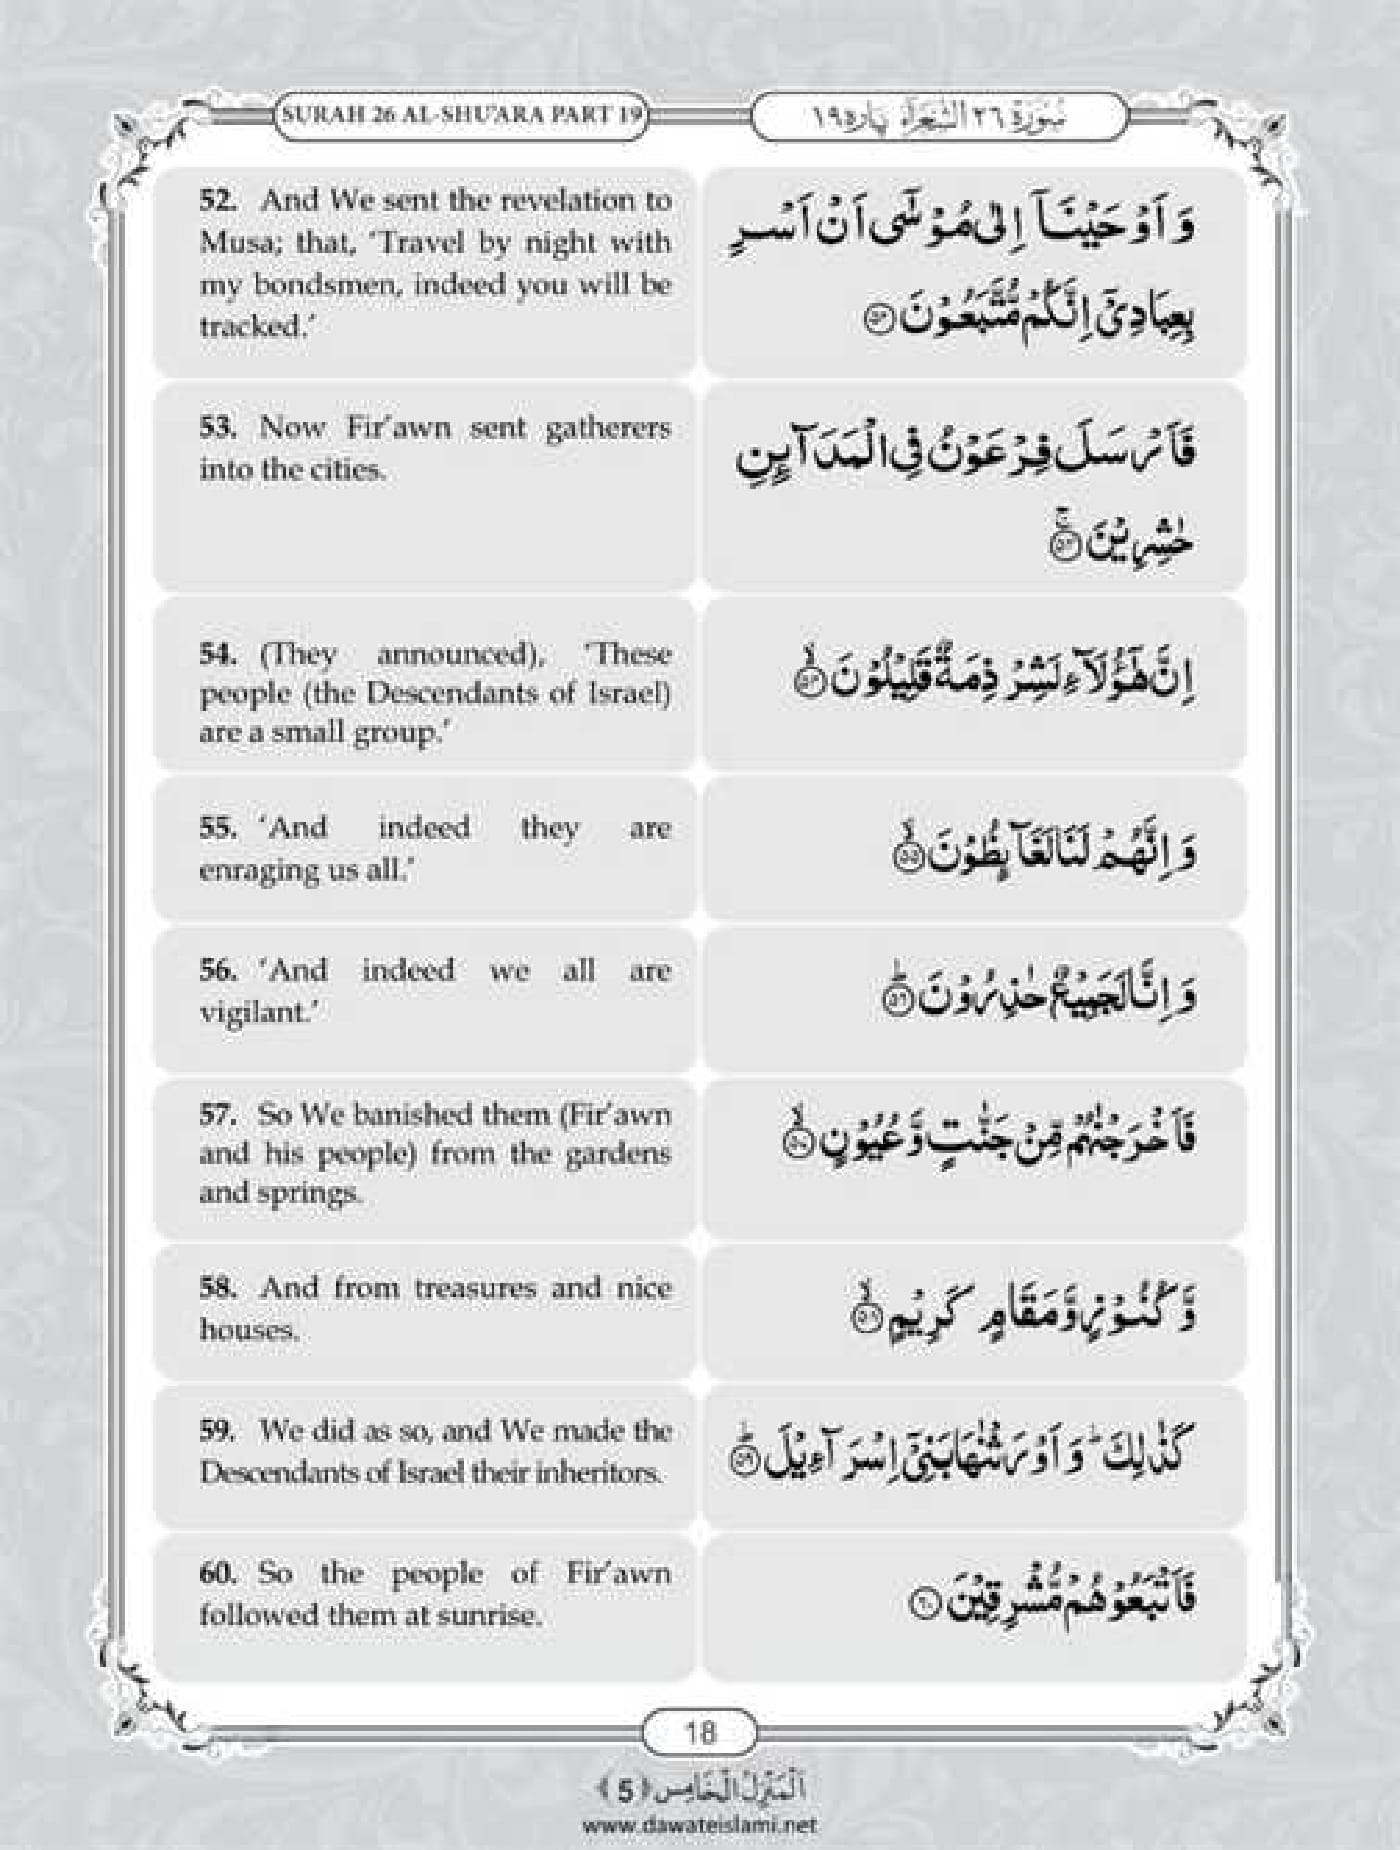 SURAH 26 AL-SHU'ARA PART 19
سُوْرَةُ ٢٦ الشُّعَرَآءِ پاره ١٩
52. And We sent the revelation to
Musa; that, ‘Travel by night with
my bondsmen, indeed you will be
tracked.’
وَ اَوْحَيْنَاۤ اِلٰى مُوْسٰۤى اَنْ اَسْرِ
بِعِبَادِيْۤ اِنَّكُمْ مُّتَّبَعُوْنَ ﴿۵۲﴾
53. Now Fir’awn sent gatherers
into the cities.
فَاَرْسَلَ فِرْعَوْنُ فِي الْمَدَآىِٕنِ
حٰشِرِيْنَ ۚ﴿۵۳﴾
54. (They announced), ‘These
people (the Descendants of Israel)
are a small group.’
اِنَّ هٰۤؤُلَآءِ لَشِرْذِمَةٌ قَلِيْلُوْنَ ۙ﴿۵۴﴾
55. ‘And indeed they are
enraging us all.’
وَ اِنَّهُمْ لَنَا لَغَآىِٕظُوْنَ ۙ﴿۵۵﴾
56. ‘And indeed we all are
vigilant.’
وَ اِنَّا لَجَمِيْعٌ حٰذِرُوْنَ ؕ﴿۵۶﴾
57. So We banished them (Fir’awn
and his people) from the gardens
and springs.
فَاَخْرَجْنٰهُمْ مِّنْ جَنّٰتٍ وَّ عُيُوْنٍ ۙ﴿۵۷﴾
58. And from treasures and nice
houses.
وَّ كُنُوْزٍ وَّ مَقَامٍ كَرِيْمٍ ۙ﴿۵۸﴾
59. We did as so, and We made the
Descendants of Israel their inheritors.
كَذٰلِكَ ؕ وَ اَوْرَثْنٰهَا بَنِيْۤ اِسْرَآءِيْلَ ؕ﴿۵۹﴾
60. So the people of Fir’awn
followed them at sunrise.
فَاَتْبَعُوْهُمْ مُّشْرِقِيْنَ ﴿۶۰﴾
18
اَلْمَنْزِلُ الْخَامِس ﴿5﴾
www.dawateislami.net